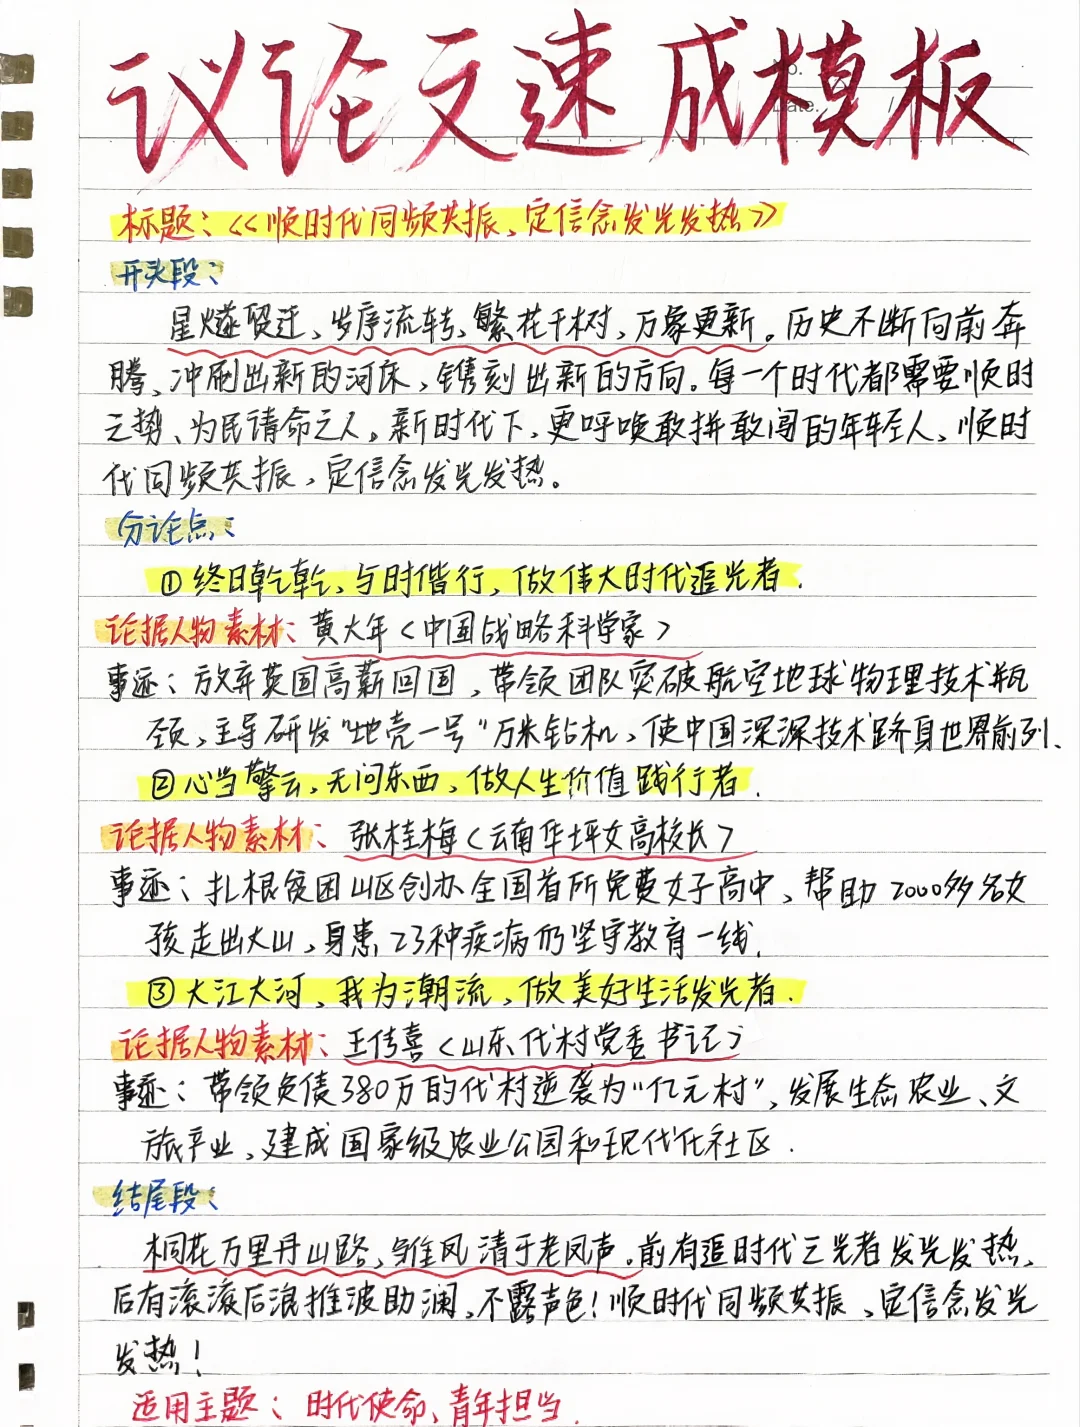 议论文速成模板
No.
Date.
标题：《顺时代同频共振，定信念发光发热》
开头段：
星燧贸迁、岁序流转，繁花千树，万象更新。历史不断向前奔
腾、冲刷出新的河床，镌刻出新的方向。每一个时代都需要顺时
之势、为民请命之人。新时代下，更呼唤敢拼敢闯的年轻人，顺时
代同频共振，定信念发光发热。
分论点：
①终日乾乾，与时偕行，做伟大时代追光者.
论据人物素材：黄大年〈中国战略科学家〉
事迹：放弃英国高薪回国，带领团队突破航空地球物理技术瓶
颈，主导研发"地壳一号"万米钻机，使中国深深技术跻身世界前列、
②心当擎云，无问东西，做人生价值践行者.
论据人物素材：张桂梅〈云南华坪女高校长〉
事迹：扎根贫困山区创办全国首所免费女子高中，帮助2000多名女
孩走出大山，身患23种疾病仍坚守教育一线.
③大江大河，我为潮流，做美好生活发光者.
论据人物素材：王传喜〈山东代村党委书记〉
事迹：带领负债380万的代村逆袭为"亿元村"，发展生态农业、文
旅产业，建成国家级农业公园和现代化社区.
结尾段：
桐花万里丹山路，雏凤清于老凤声。前有追时代之光者发光发热，
后有滚滚后浪推波助澜，不露声色！顺时代同频共振，定信念发光
发热！
适用主题：时代使命、青年担当.